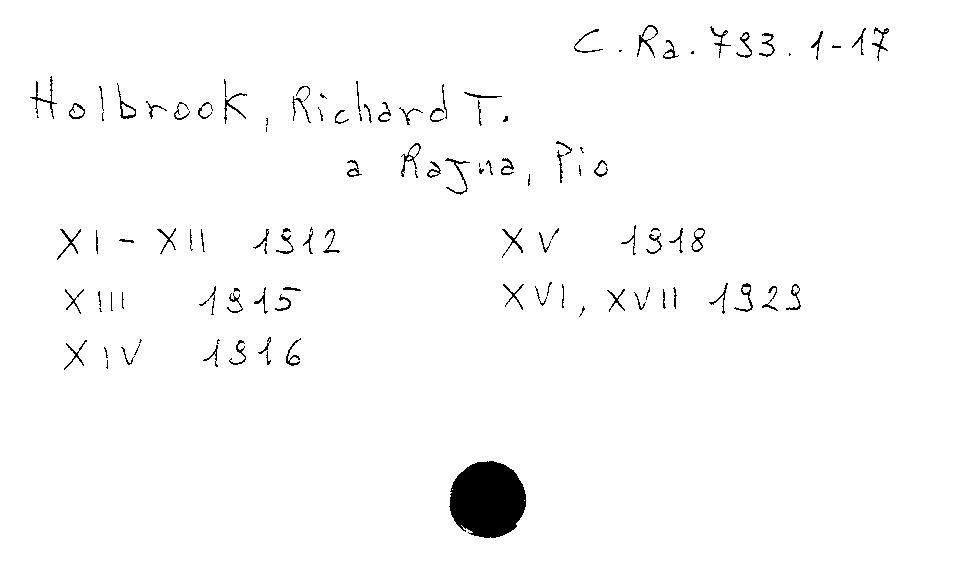 C. Ra. 793. 1-17
Holbrook, Richard T.
a Rajna, Pio
XI - XII 1912
XIII 1915
XIV 1916
XV 1918
XVI, XVII 1929